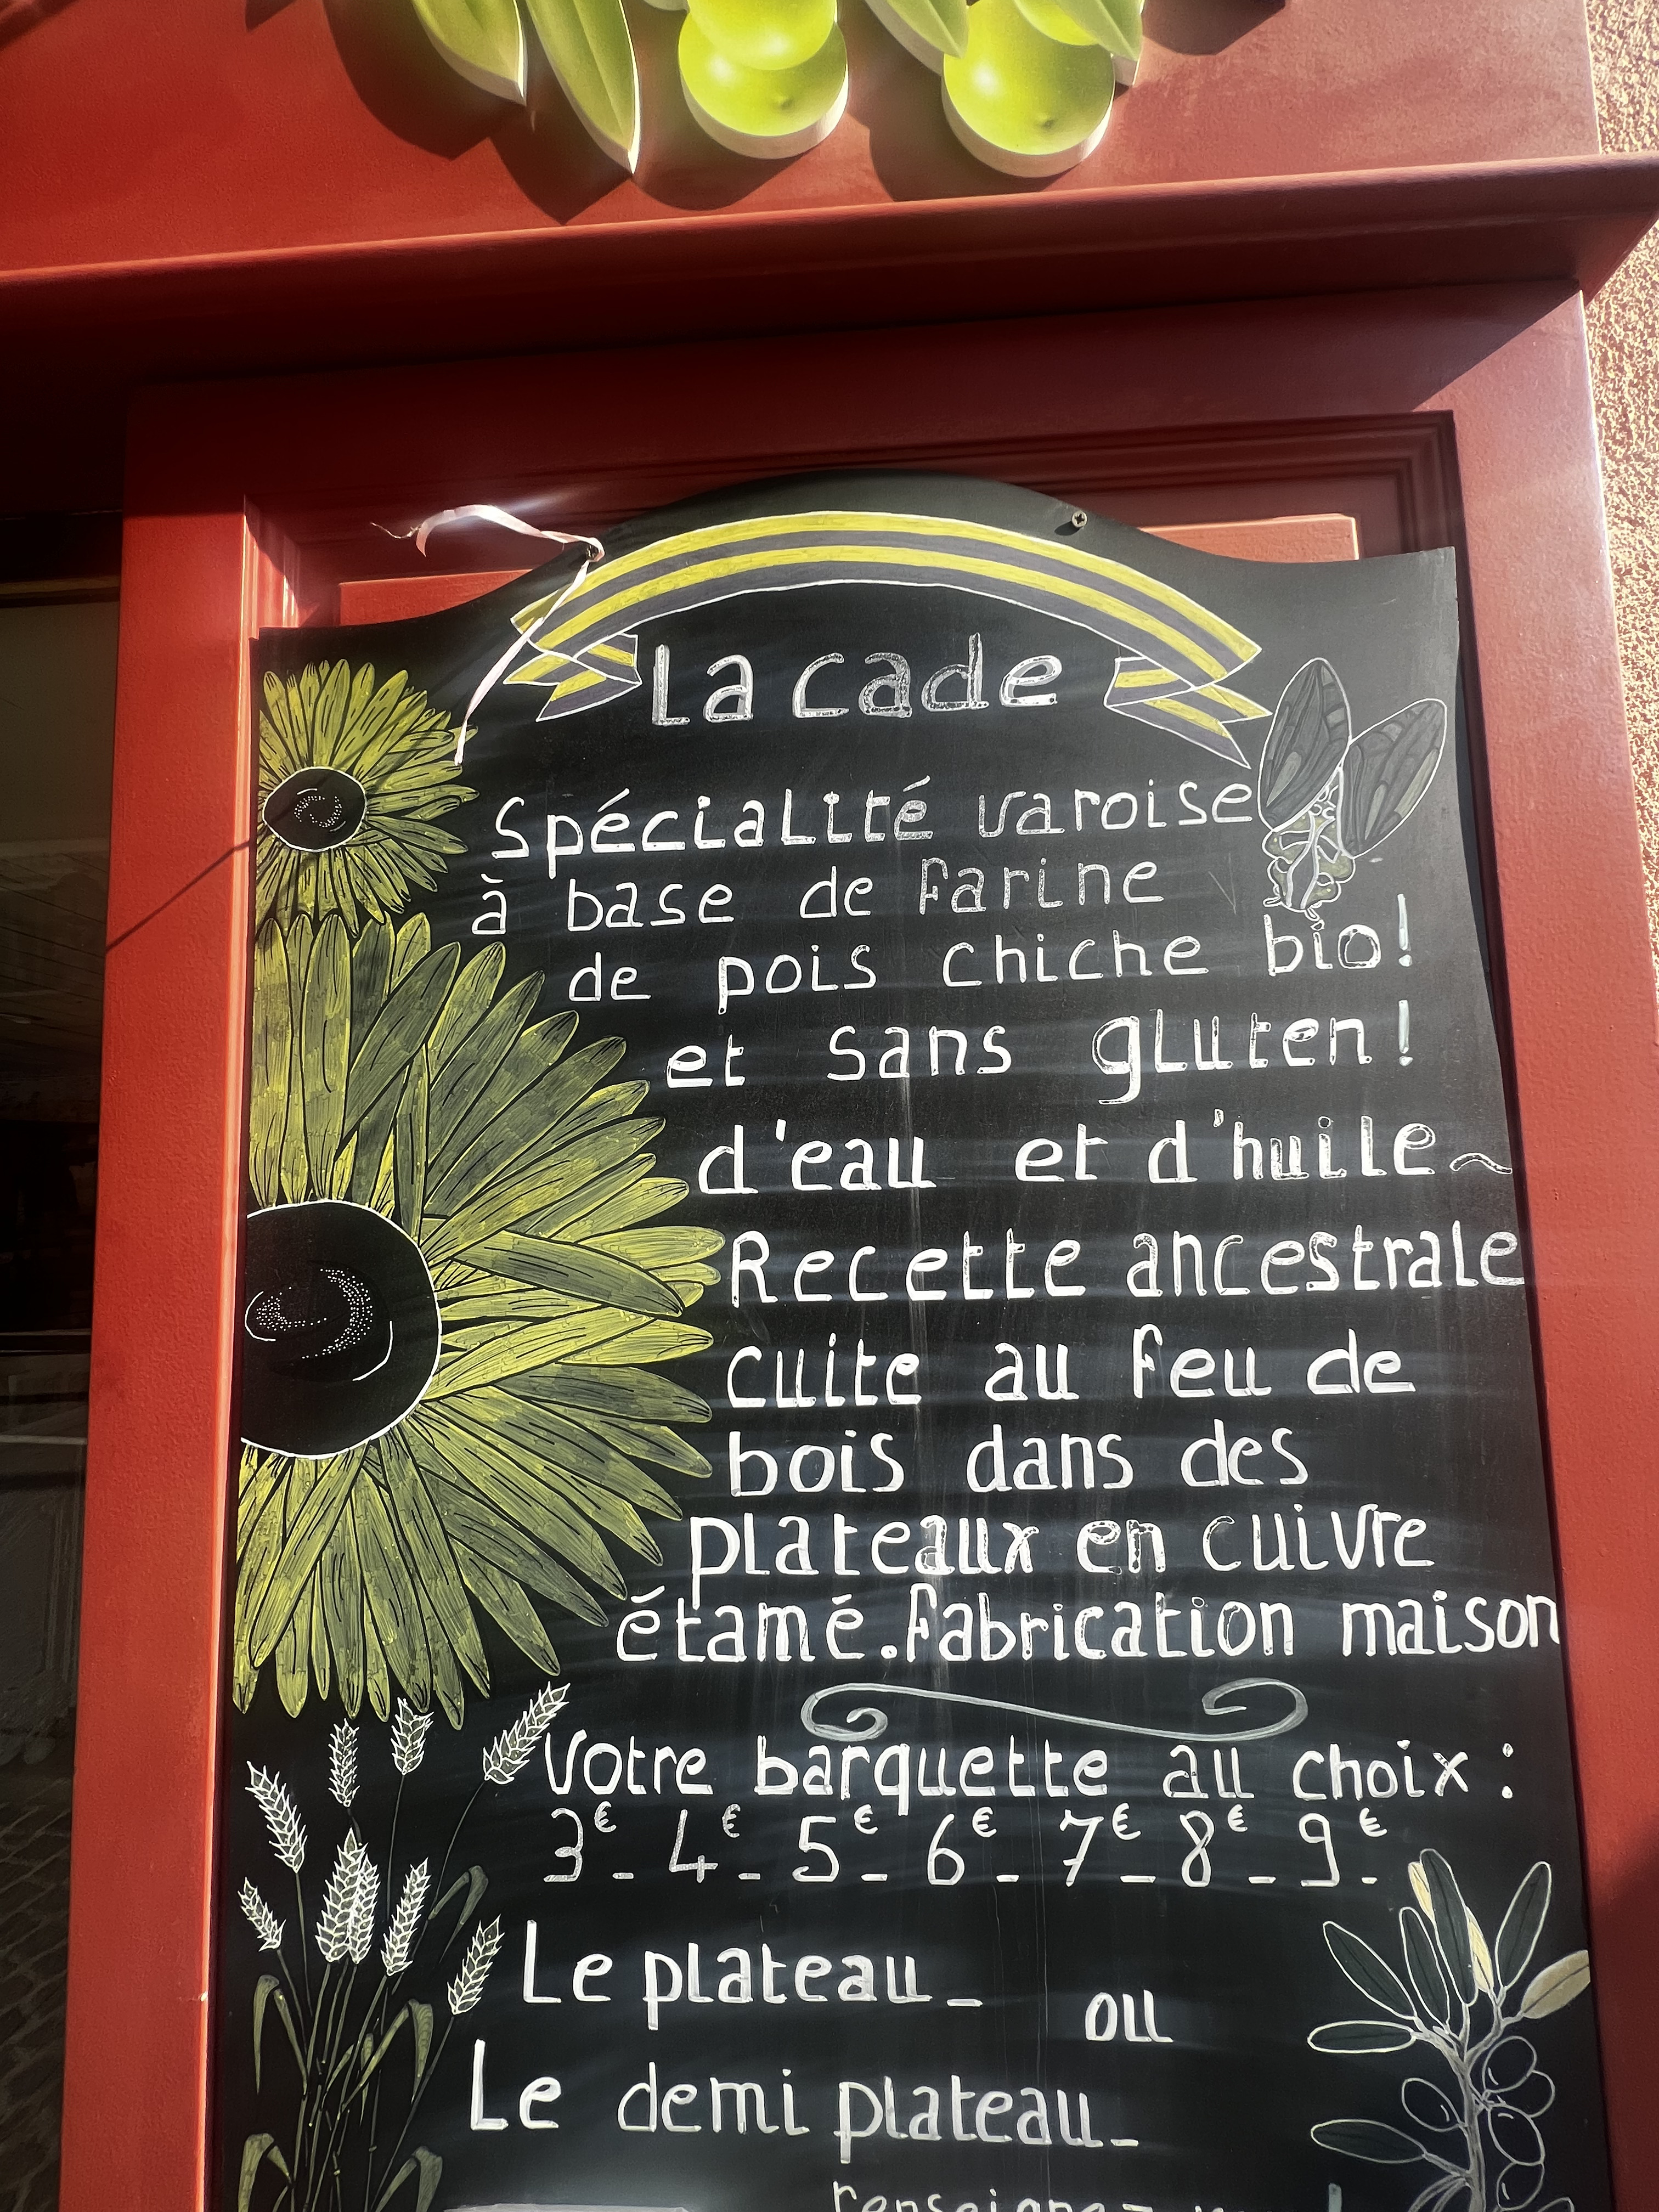 La cade
Spécialité varoise
à base de farine
de pois chiche bio!
et sans gluten!
d'eau et d'huile~
Recette ancestrale
cuite au feu de
bois dans des
plateaux en cuivre
étamé.Fabrication maison
Votre barquette au choix :
3€_4€_5€_6€_7€_8€_9€-
Le plateau_ ou
Le demi plateau_